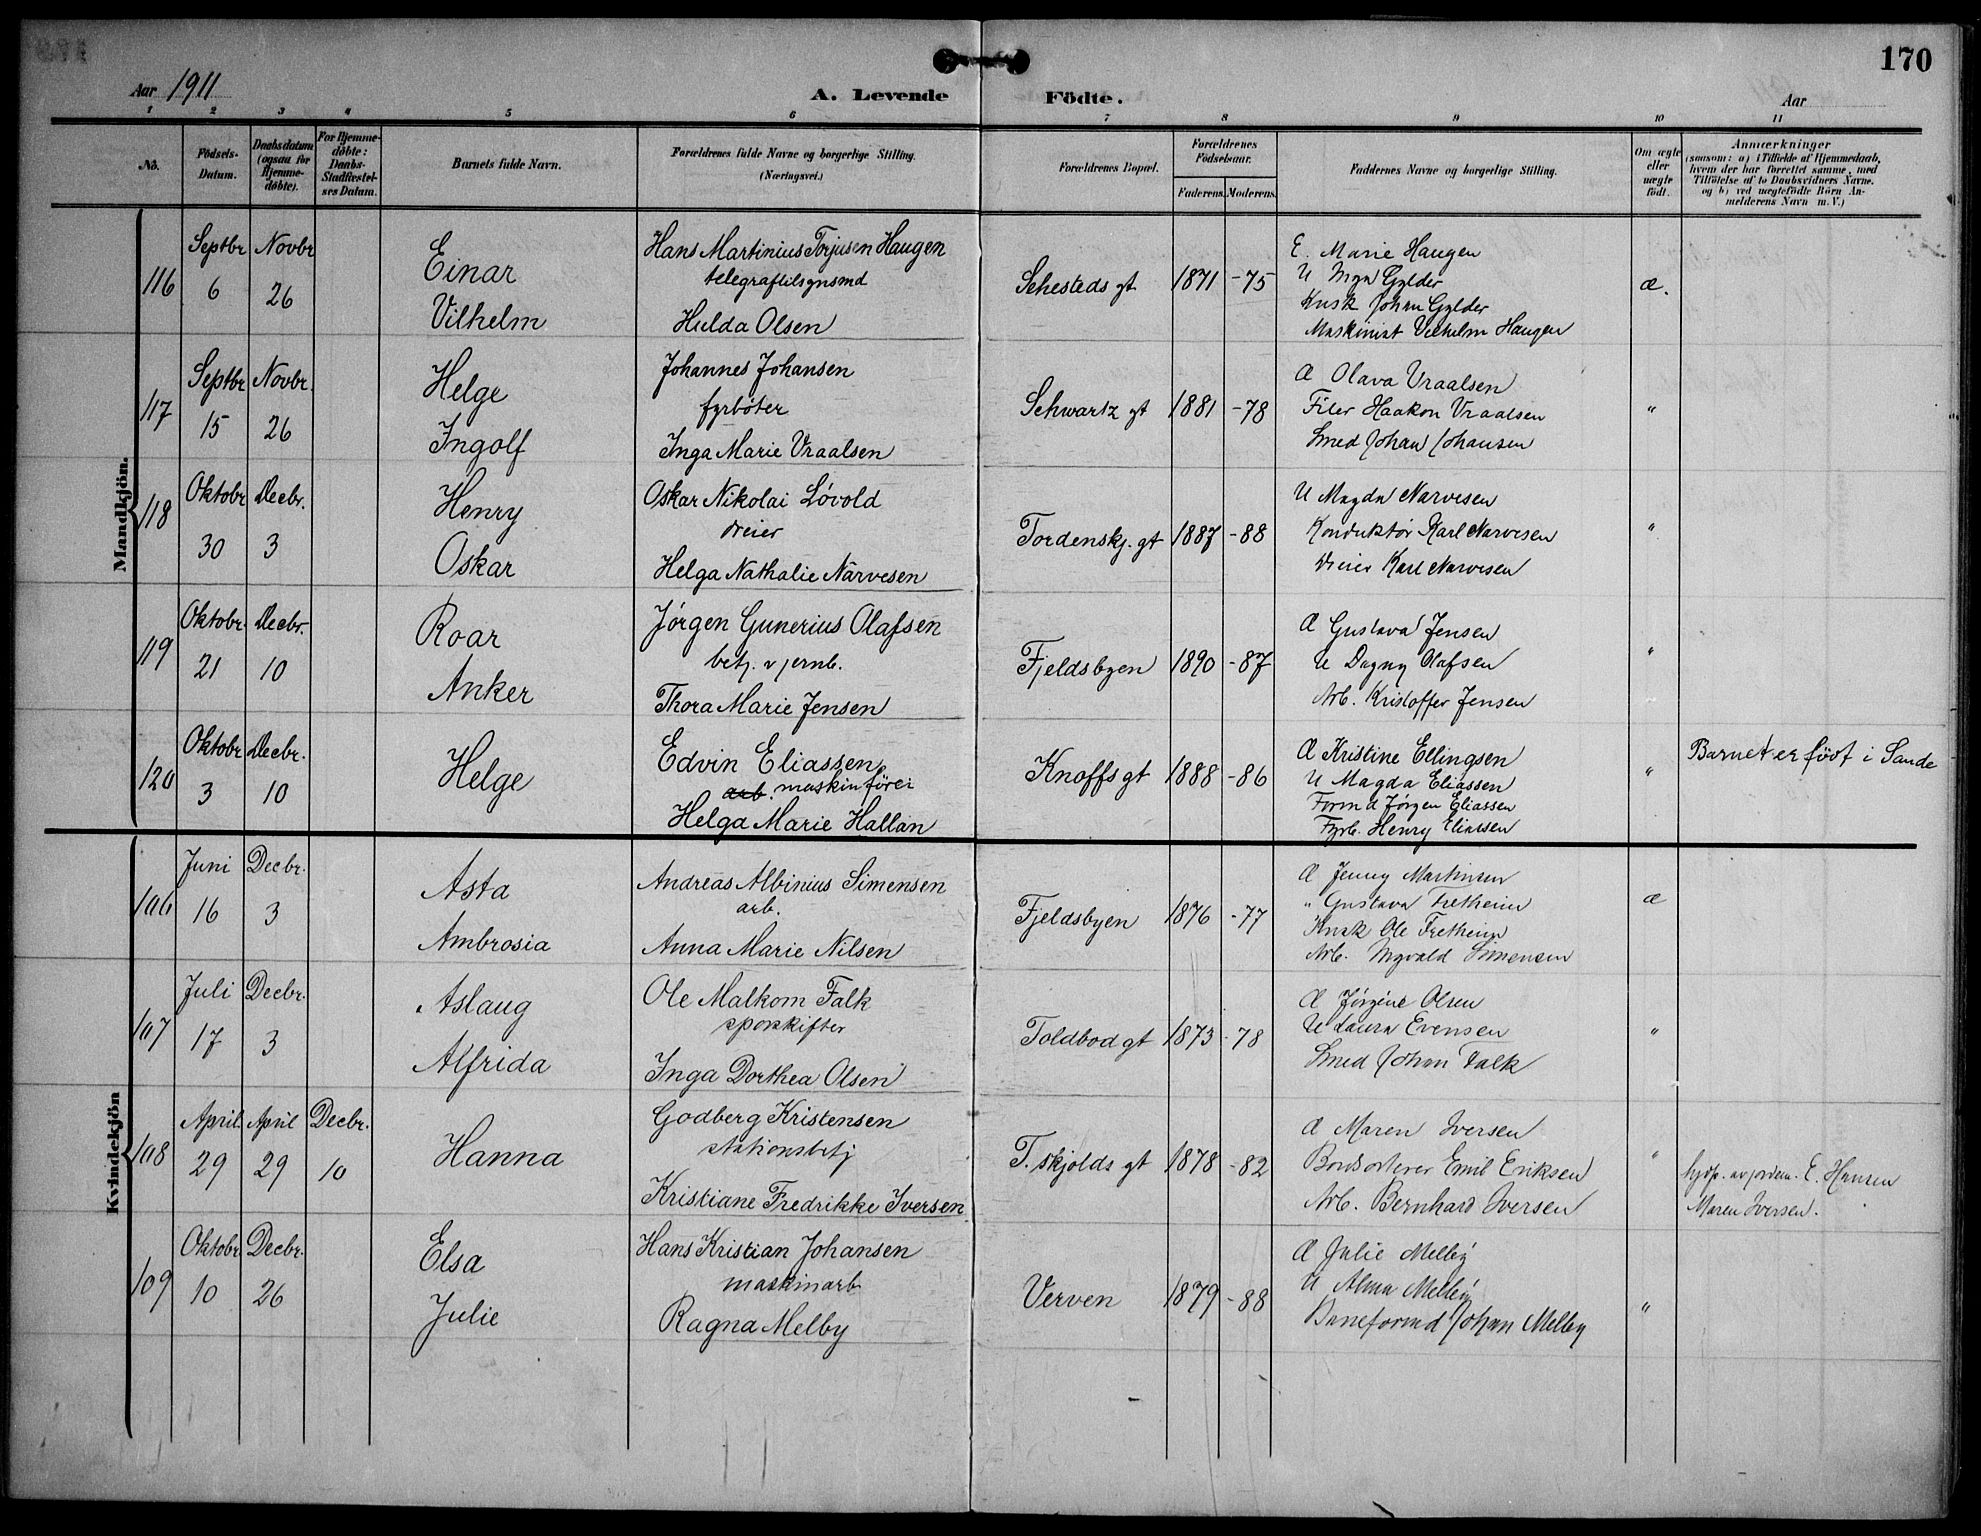 170
Aar 1911
A. Levende Födte.
Aar
1 2 3 4 5 6 7 8 9 10 11
No.
Födsels-Datum.
Daabsdatum (ogsaa for Hjemme-döbte).
For Hjemme-döbte: Daabs-Stadfæstel-ses Datum.
Barnets fulde Navn.
Forældrenes fulde Navne og borgerlige Stilling. (Næringsvei.)
Forældrenes Bopæl.
Forældrenes Födselsaar.
Faderens. Moderens.
Faddernes Navne og borgerlige Stilling.
Om ægte eller uægte födt.
Anmærkninger
(saasom: a) i Tilfælde af Hjemmedaab, hvem der har forrettet samme, med Tilföielse af to Daabsvidners Navne. og b) ved uægtefödte Börn An-melderens Navn m. V.)
Mandkjön.
116
Septbr 6
Novbr 26
Einar
Vilhelm
Hans Martinius Torjusen Haugen
telegraftilsynsmd
Hulda Olsen
Sehesteds gt
1871 -75
E. Marie Haugen
U Inga Gylder
Kusk Johan Gylder
Maskinist Vilhelm Haugen
æ.
117
Septbr 15
Novbr. 26
Helge
Ingolf
Johannes Johansen
fyrbøter
Inga Marie Vraalsen
Schwartz gt
1881 -78
Æ Olava Vraalsen
Filer Haakon Vraalsen
Smed Johan Johansen
"
118
Oktobr 30
Decbr. 3
Henry
Oskar
Oskar Nikolai Løvold
dreier
Helga Nathalie Narvesen
Tordenskj. gt
1887 -88
U Magda Narvesen
Konduktör Karl Narvesen
Dreier Karl Narvesen
"
119
Oktobr. 21
Decbr. 10
Roar
Anker
Jørgen Gunerius Olafsen
betj. v jernb.
Thora Marie Jensen
Fjeldsbyen
1890 -87
Æ Gustava Jensen
U Dagny Olafsen
Arb. Kristoffer Jensen
"
120
Oktobr 3
Decbr. 10
Helge
Edvin Eliassen
arb. maskinfører
Helga Marie Hallan
Knoffs gt
1888 -86
Æ Kristine Ellingsen
U Magda Eliassen
Formd Jørgen Eliassen
Fyrb. Henry Eliassen
"
Barnet er födt i Sande
Kvindekjön
106
Juni 16
Decbr. 3
Asta
Ambrosia
Andreas Albinius Simensen
arb.
Anna Marie Nilsen
Fjeldsbyen
1876 -77
Æ Jenny Martinsen
" Gustava Fretheim
Kusk Ole Fretheim
Arb. Ingvald Simensen
æ
107
Juli 17
Decbr. 3
Aslaug
Alfrida
Ole Malkom Falk
sporskifter
Inga Dorthea Olsen
Toldbod gt
1873 -78
Æ Jørgine Olsen
U Laura Evensen
Smed Johan Falk
"
108
April. 29
April 29
Decbr. 10
Hanna
Godberg Kristensen
stationsbetj
Kristiane Fredrikke Iversen
T. skjolds gt
1878 -82
Æ Maren Iversen
Emil Eriksen
Arb. Bernhard Iversen
"
hjdp. av jordm. E. Hansen
Maren Iversen.
109
Oktobr 10
Decbr. 26
Elsa
Julie
Hans Kristian Johansen
maskinarb
Ragna Melby
Verven
1879 -88
Æ Julie Melby
U Alma Melby
Baneformd Johan Melby
"